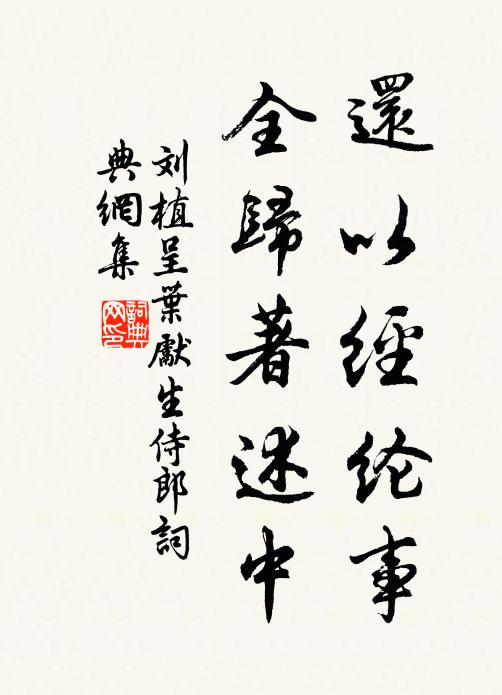 還以經纶事
全歸著述中
刘植呈葉獻生侍郎詞
典網集
詞典
网印